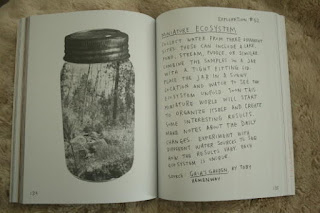 EXPLORATION #52
MINIATURE ECOSYSTEM
COLLECT WATER FROM THREE DIFFERENT
SITES. THESE CAN INCLUDE A LAKE,
POND, STREAM, PUDDLE, OR SIMILAR.
COMBINE THE SAMPLES IN A JAR
WITH A TIGHT FITTING LID.
PLACE THE JAR IN A SUNNY
LOCATION AND WATCH TO SEE THE
ECOSYSTEM UNFOLD. SOON THIS
MINIATURE WORLD WILL START
TO ORGANIZE ITSELF AND CREATE
SOME INTERESTING RESULTS.
MAKE NOTES ABOUT THE DAILY
CHANGES. EXPERIMENT WITH
DIFFERENT WATER SOURCES TO SEE
HOW THE RESULTS VARY. EACH
ECOSYSTEM IS UNIQUE.
SOURCE: GAIA'S GARDEN BY TOBY
HEMENWAY